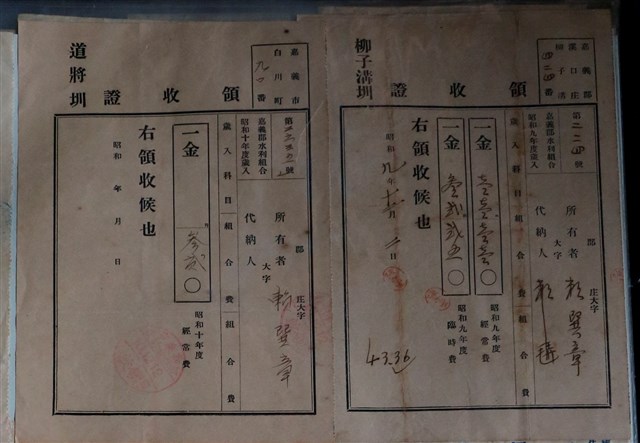 嘉義郡
溪口庄
柳子溝
四二四番
柳子溝圳
領收證
第二二四號
嘉義郡水利組合
昭和九年度歲入
郡
庄大字
所有者 賴巽章
大字
代納人
歲入科目 組合費 組合費
一金
昭和九年度
經常費
一金
〇
昭和九年度
臨時費
右領收候也
昭和九年十二月 日
43.36
嘉義市
白川町
九〇番
道將圳
領收證
第
號
嘉義郡水利組合
昭和十年度歲入
郡
庄大字
所有者 賴巽章
大字
代納人
歲入科目 組合費 組合費
一金
參貳〇
昭和十年度
經常費
右領收候也
昭和 年 月 日